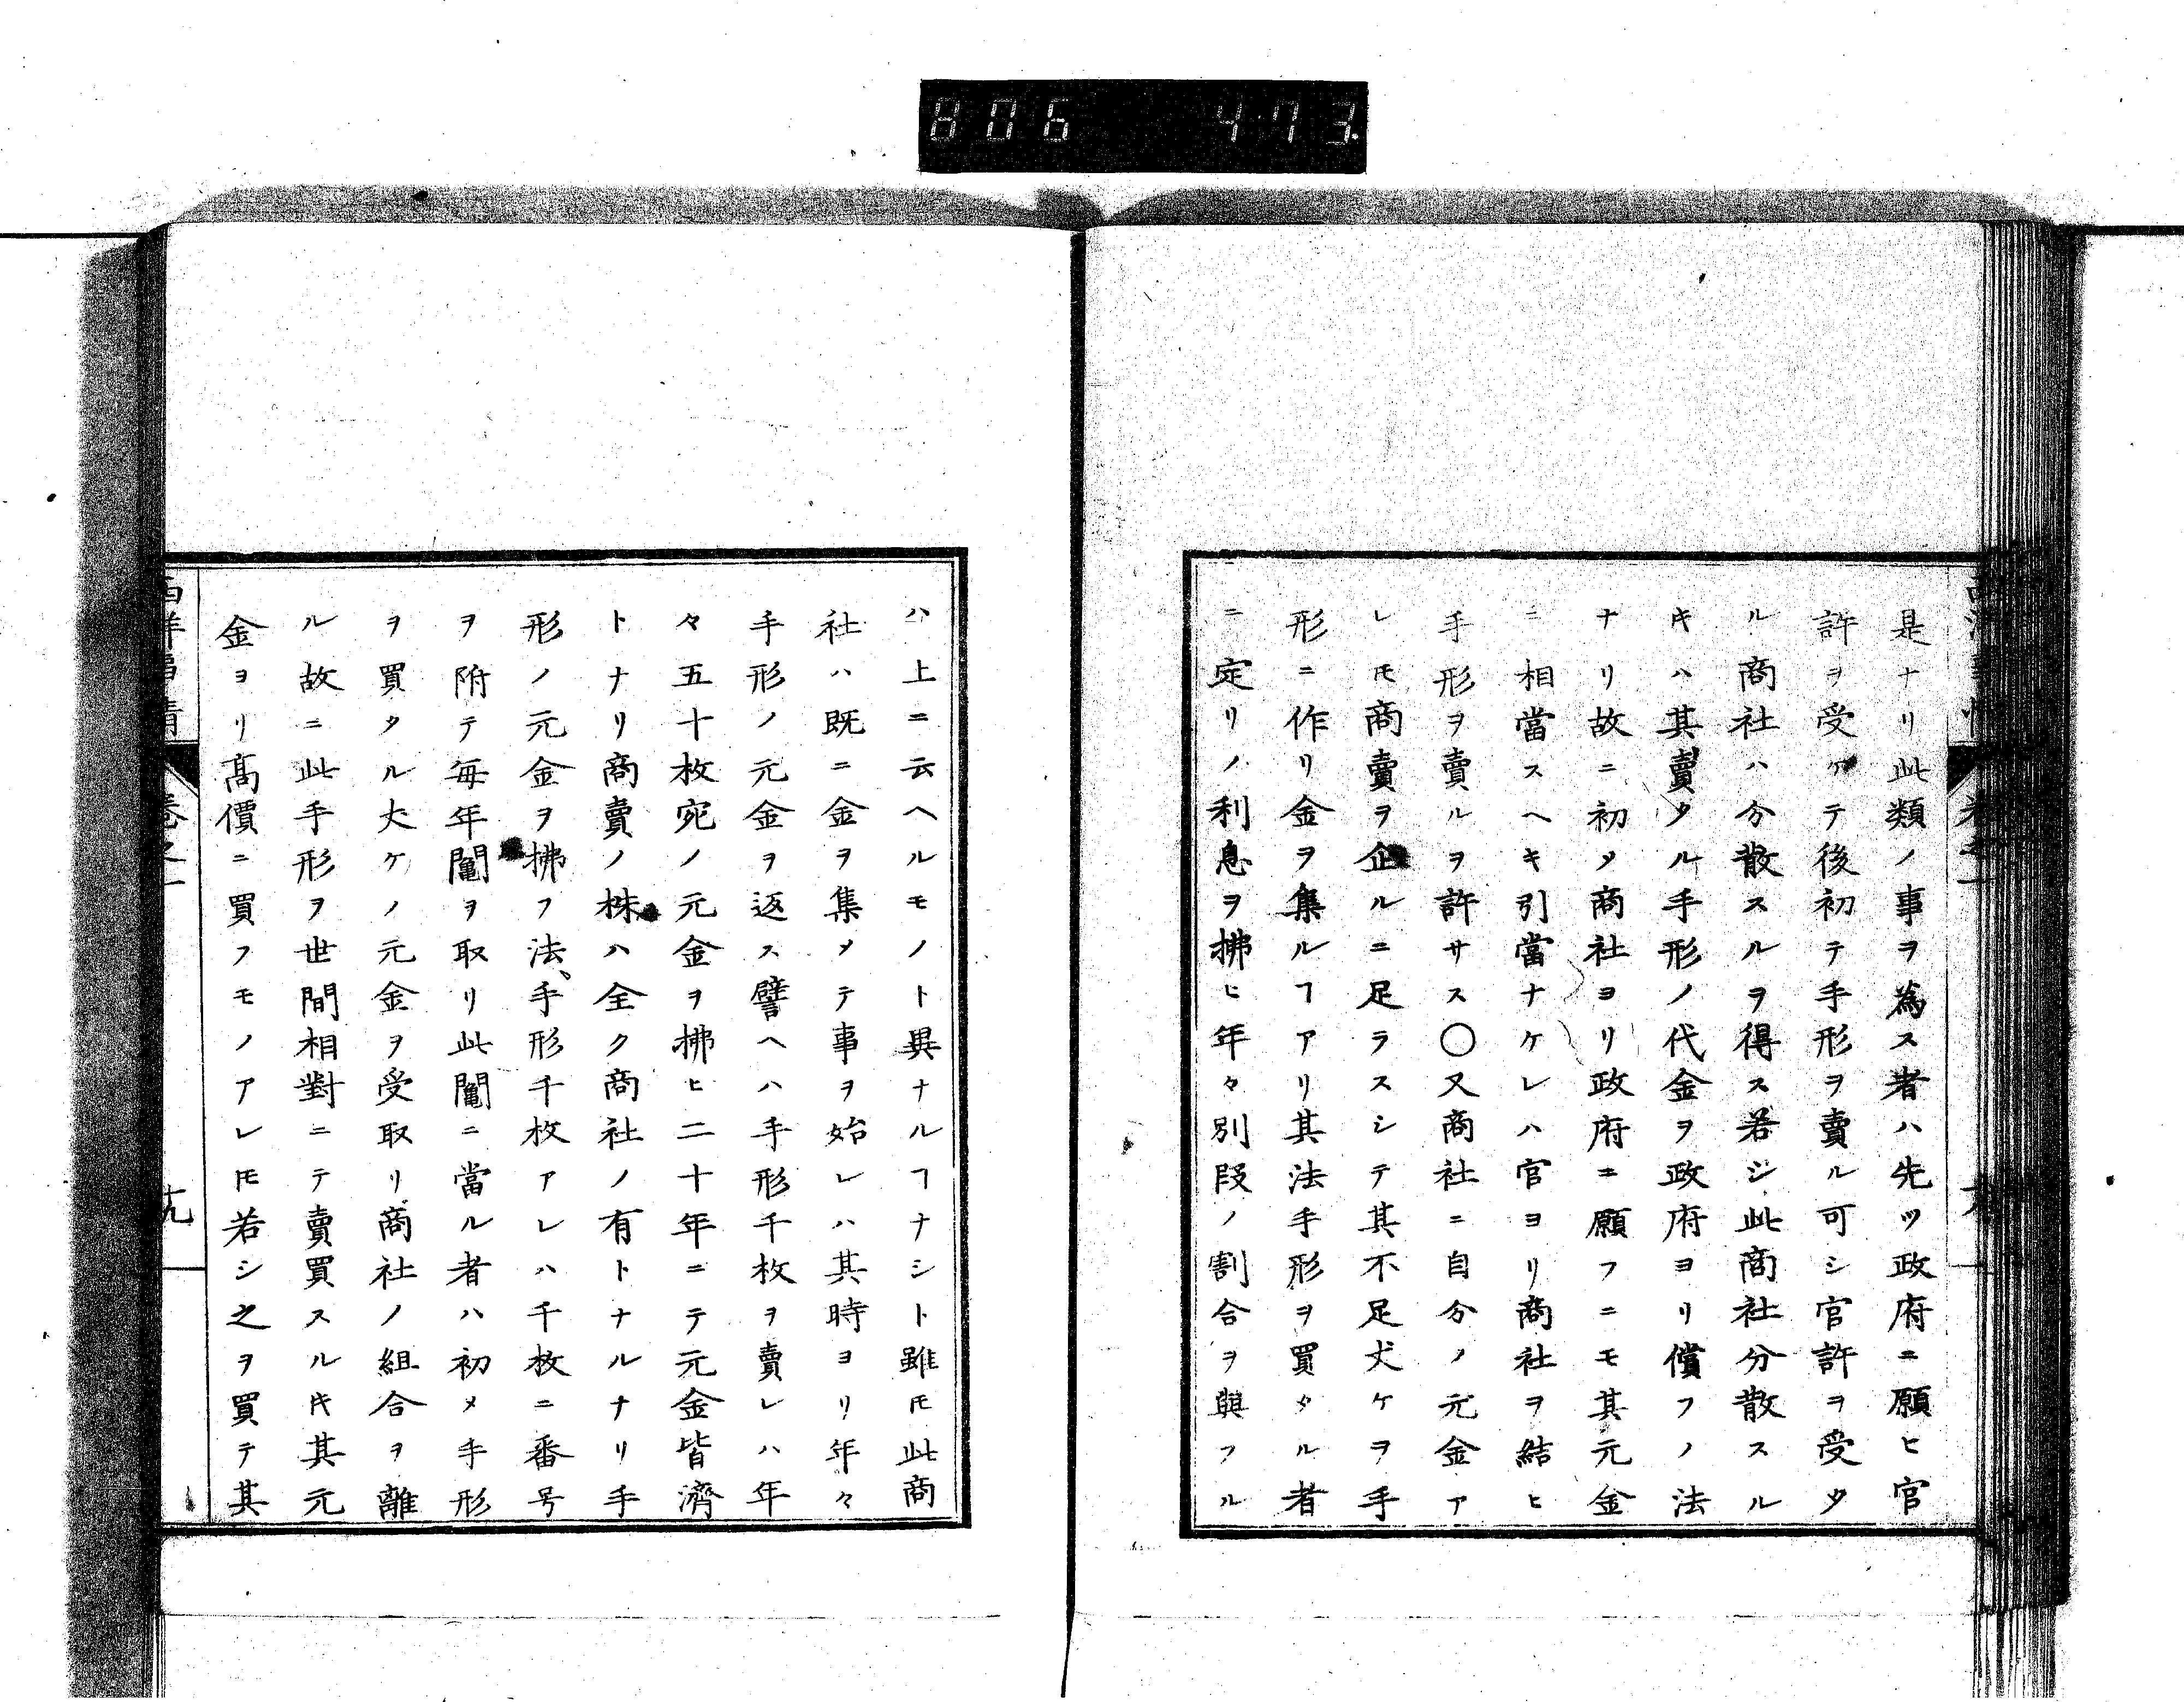 806 473
是ナリ此類ノ事ヲ為ス者ハ先ツ政府ニ願ヒ官
許ヲ受ケテ後初テ手形ヲ賣ル可シ官許ヲ受タ
ル商社ハ分散スルヲ得ス若シ此商社分散スル
キハ其賣タル手形ノ代金ヲ政府ヨリ償フノ法
ナリ故ニ初メ商社ヨリ政府ニ願フニモ其元金
ニ相當スヘキ引當ナケレハ官ヨリ商社ヲ結ヒ
手形ヲ賣ルヲ許サス〇又商社ニ自分ノ元金ア
レ𪜈商賣ヲ企ルニ足ラスシテ其不足丈ケヲ手
形ニ作リ金ヲ集ルヿアリ其法手形ヲ買タル者
ニ定リノ利息ヲ拂ヒ年々別段ノ割合ヲ與フル
ハ上ニ云ヘルモノト異ナルヿナシト雖𪜈此商
社ハ既ニ金ヲ集メテ事ヲ始レハ其時ヨリ年々
手形ノ元金ヲ返ス譬ヘハ手形千枚ヲ賣レハ年
々五十枚宛ノ元金ヲ拂ヒ二十年ニテ元金皆濟
トナリ商賣ノ株ハ全ク商社ノ有トナルナリ手
形ノ元金ヲ拂フ法、手形千枚アレハ千枚ニ番号
ヲ附テ毎年鬮ヲ取リ此鬮ニ當ル者ハ初メ手形
ヲ買タル丈ケノ元金ヲ受取リ商社ノ組合ヲ離
ル故ニ此手形ヲ世間相對ニテ賣買スルキ其元
金ヨリ高價ニ買フモノアレ𪜈若シ之ヲ買テ其
西洋事情 卷之一 十九